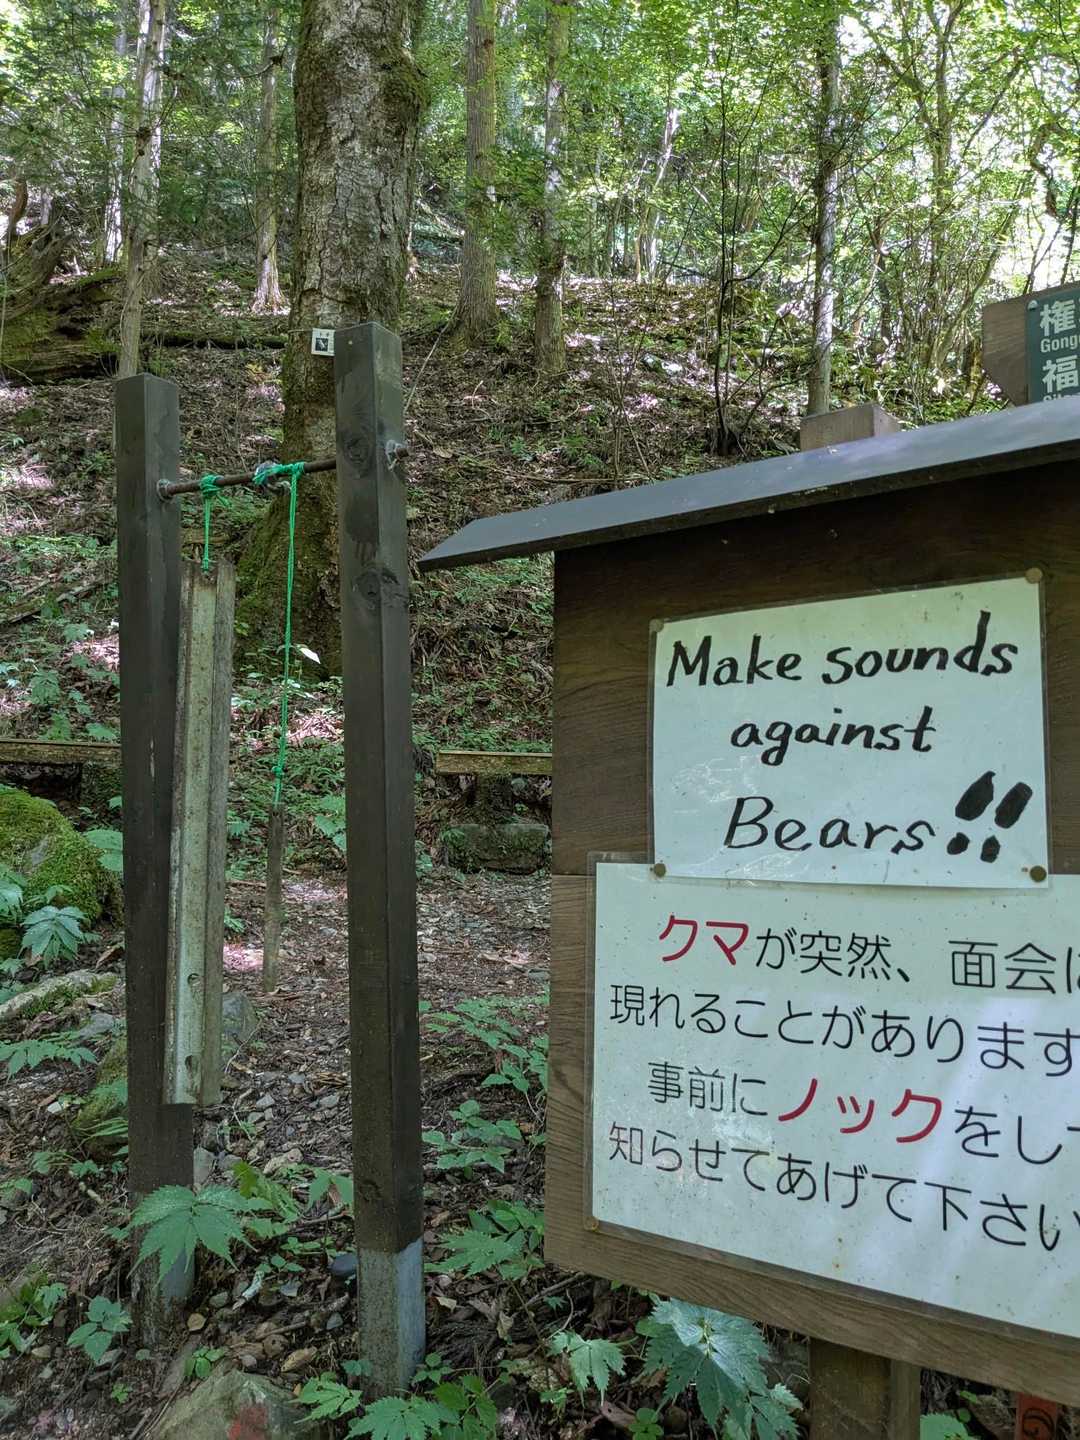 権
Gong
福
Make sounds
against
Bears!!
クマが突然、面会に
現れることがあります
事前にノックをして
知らせてあげて下さい